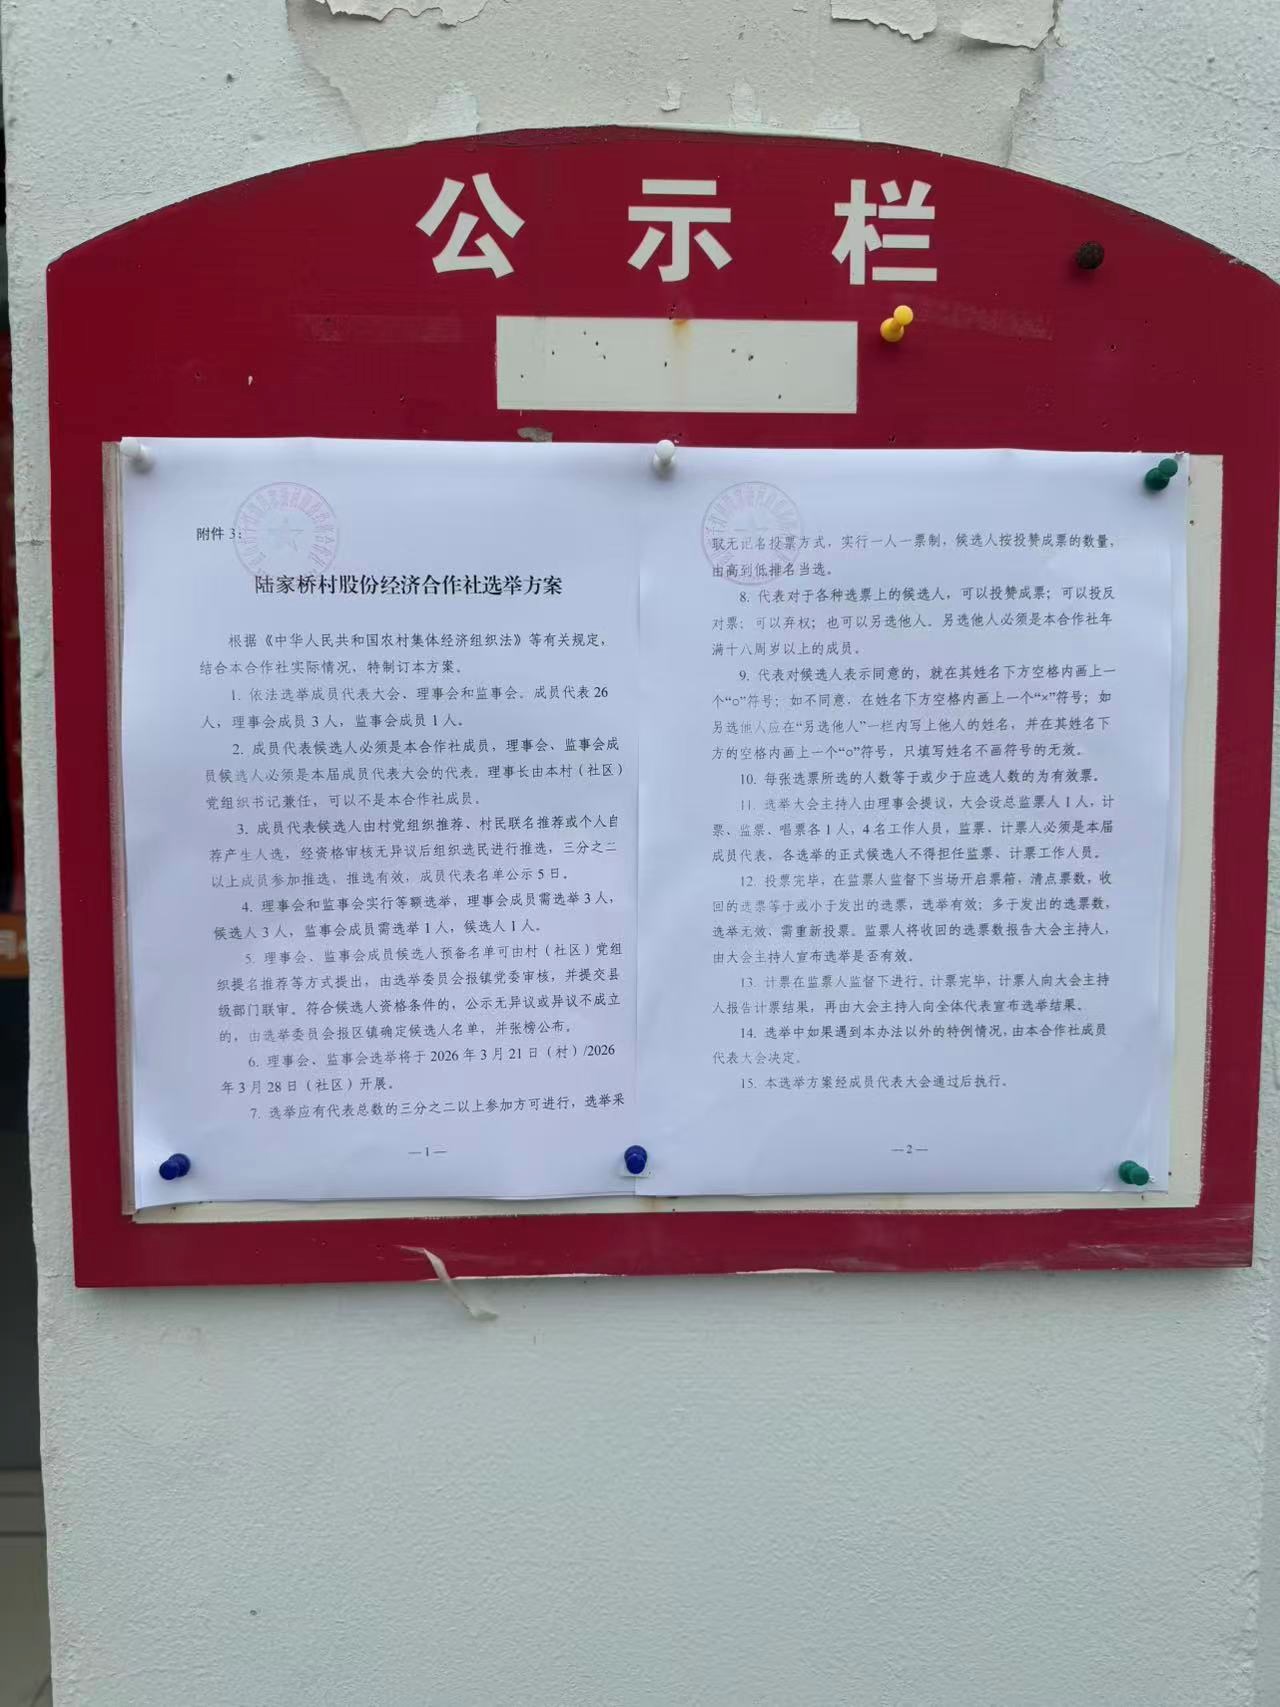 公示栏
附件 3：
陆家桥村股份经济合作社选举方案
根据《中华人民共和国农村集体经济组织法》等有关规定，
结合本合作社实际情况，特制订本方案。
1. 依法选举成员代表大会、理事会和监事会。成员代表 26
人，理事会成员 3 人，监事会成员 1 人。
2. 成员代表候选人必须是本合作社成员，理事会、监事会成
员候选人必须是本届成员代表大会的代表。理事长由本村（社区）
党组织书记兼任，可以不是本合作社成员。
3. 成员代表候选人由村党组织推荐、村民联名推荐或个人自
荐产生人选，经资格审核无异议后组织选民进行推选，三分之二
以上成员参加推选，推选有效，成员代表名单公示 5 日。
4. 理事会和监事会实行等额选举，理事会成员需选举 3 人，
候选人 3 人，监事会成员需选举 1 人，候选人 1 人。
5. 理事会、监事会成员候选人预备名单可由村（社区）党组
织提名推荐等方式提出，由选举委员会报镇党委审核，并提交县
级部门联审。符合候选人资格条件的，公示无异议或异议不成立
的，由选举委员会报区镇确定候选人名单，并张榜公布。
6. 理事会、监事会选举将于 2026 年 3 月 21 日（村）/2026
年 3 月 28 日（社区）开展。
7. 选举应有代表总数的三分之二以上参加方可进行，选举采
—1—
取无记名投票方式，实行一人一票制，候选人按投赞成票的数量，
由高到低排名当选。
8. 代表对于各种选票上的候选人，可以投赞成票；可以投反
对票；可以弃权；也可以另选他人。另选他人必须是本合作社年
满十八周岁以上的成员。
9. 代表对候选人表示同意的，就在其姓名下方空格内画上一
个“○”符号；如不同意，在姓名下方空格内画上一个“×”符号；如
另选他人应在“另选他人”一栏内写上他人的姓名，并在其姓名下
方的空格内画上一个“○”符号，只填写姓名不画符号的无效。
10. 每张选票所选的人数等于或少于应选人数的为有效票。
11. 选举大会主持人由理事会提议，大会设总监票人 1 人，计
票、监票、唱票各 1 人，4 名工作人员，监票、计票人必须是本届
成员代表，各选举的正式候选人不得担任监票、计票工作人员。
12. 投票完毕，在监票人监督下当场开启票箱，清点票数，收
回的选票等于或小于发出的选票，选举有效；多于发出的选票数，
选举无效，需重新投票。监票人将收回的选票数报告大会主持人，
由大会主持人宣布选举是否有效。
13. 计票在监票人监督下进行。计票完毕，计票人向大会主持
人报告计票结果，再由大会主持人向全体代表宣布选举结果。
14. 选举中如果遇到本办法以外的特例情况，由本合作社成员
代表大会决定。
15. 本选举方案经成员代表大会通过后执行。
—2—